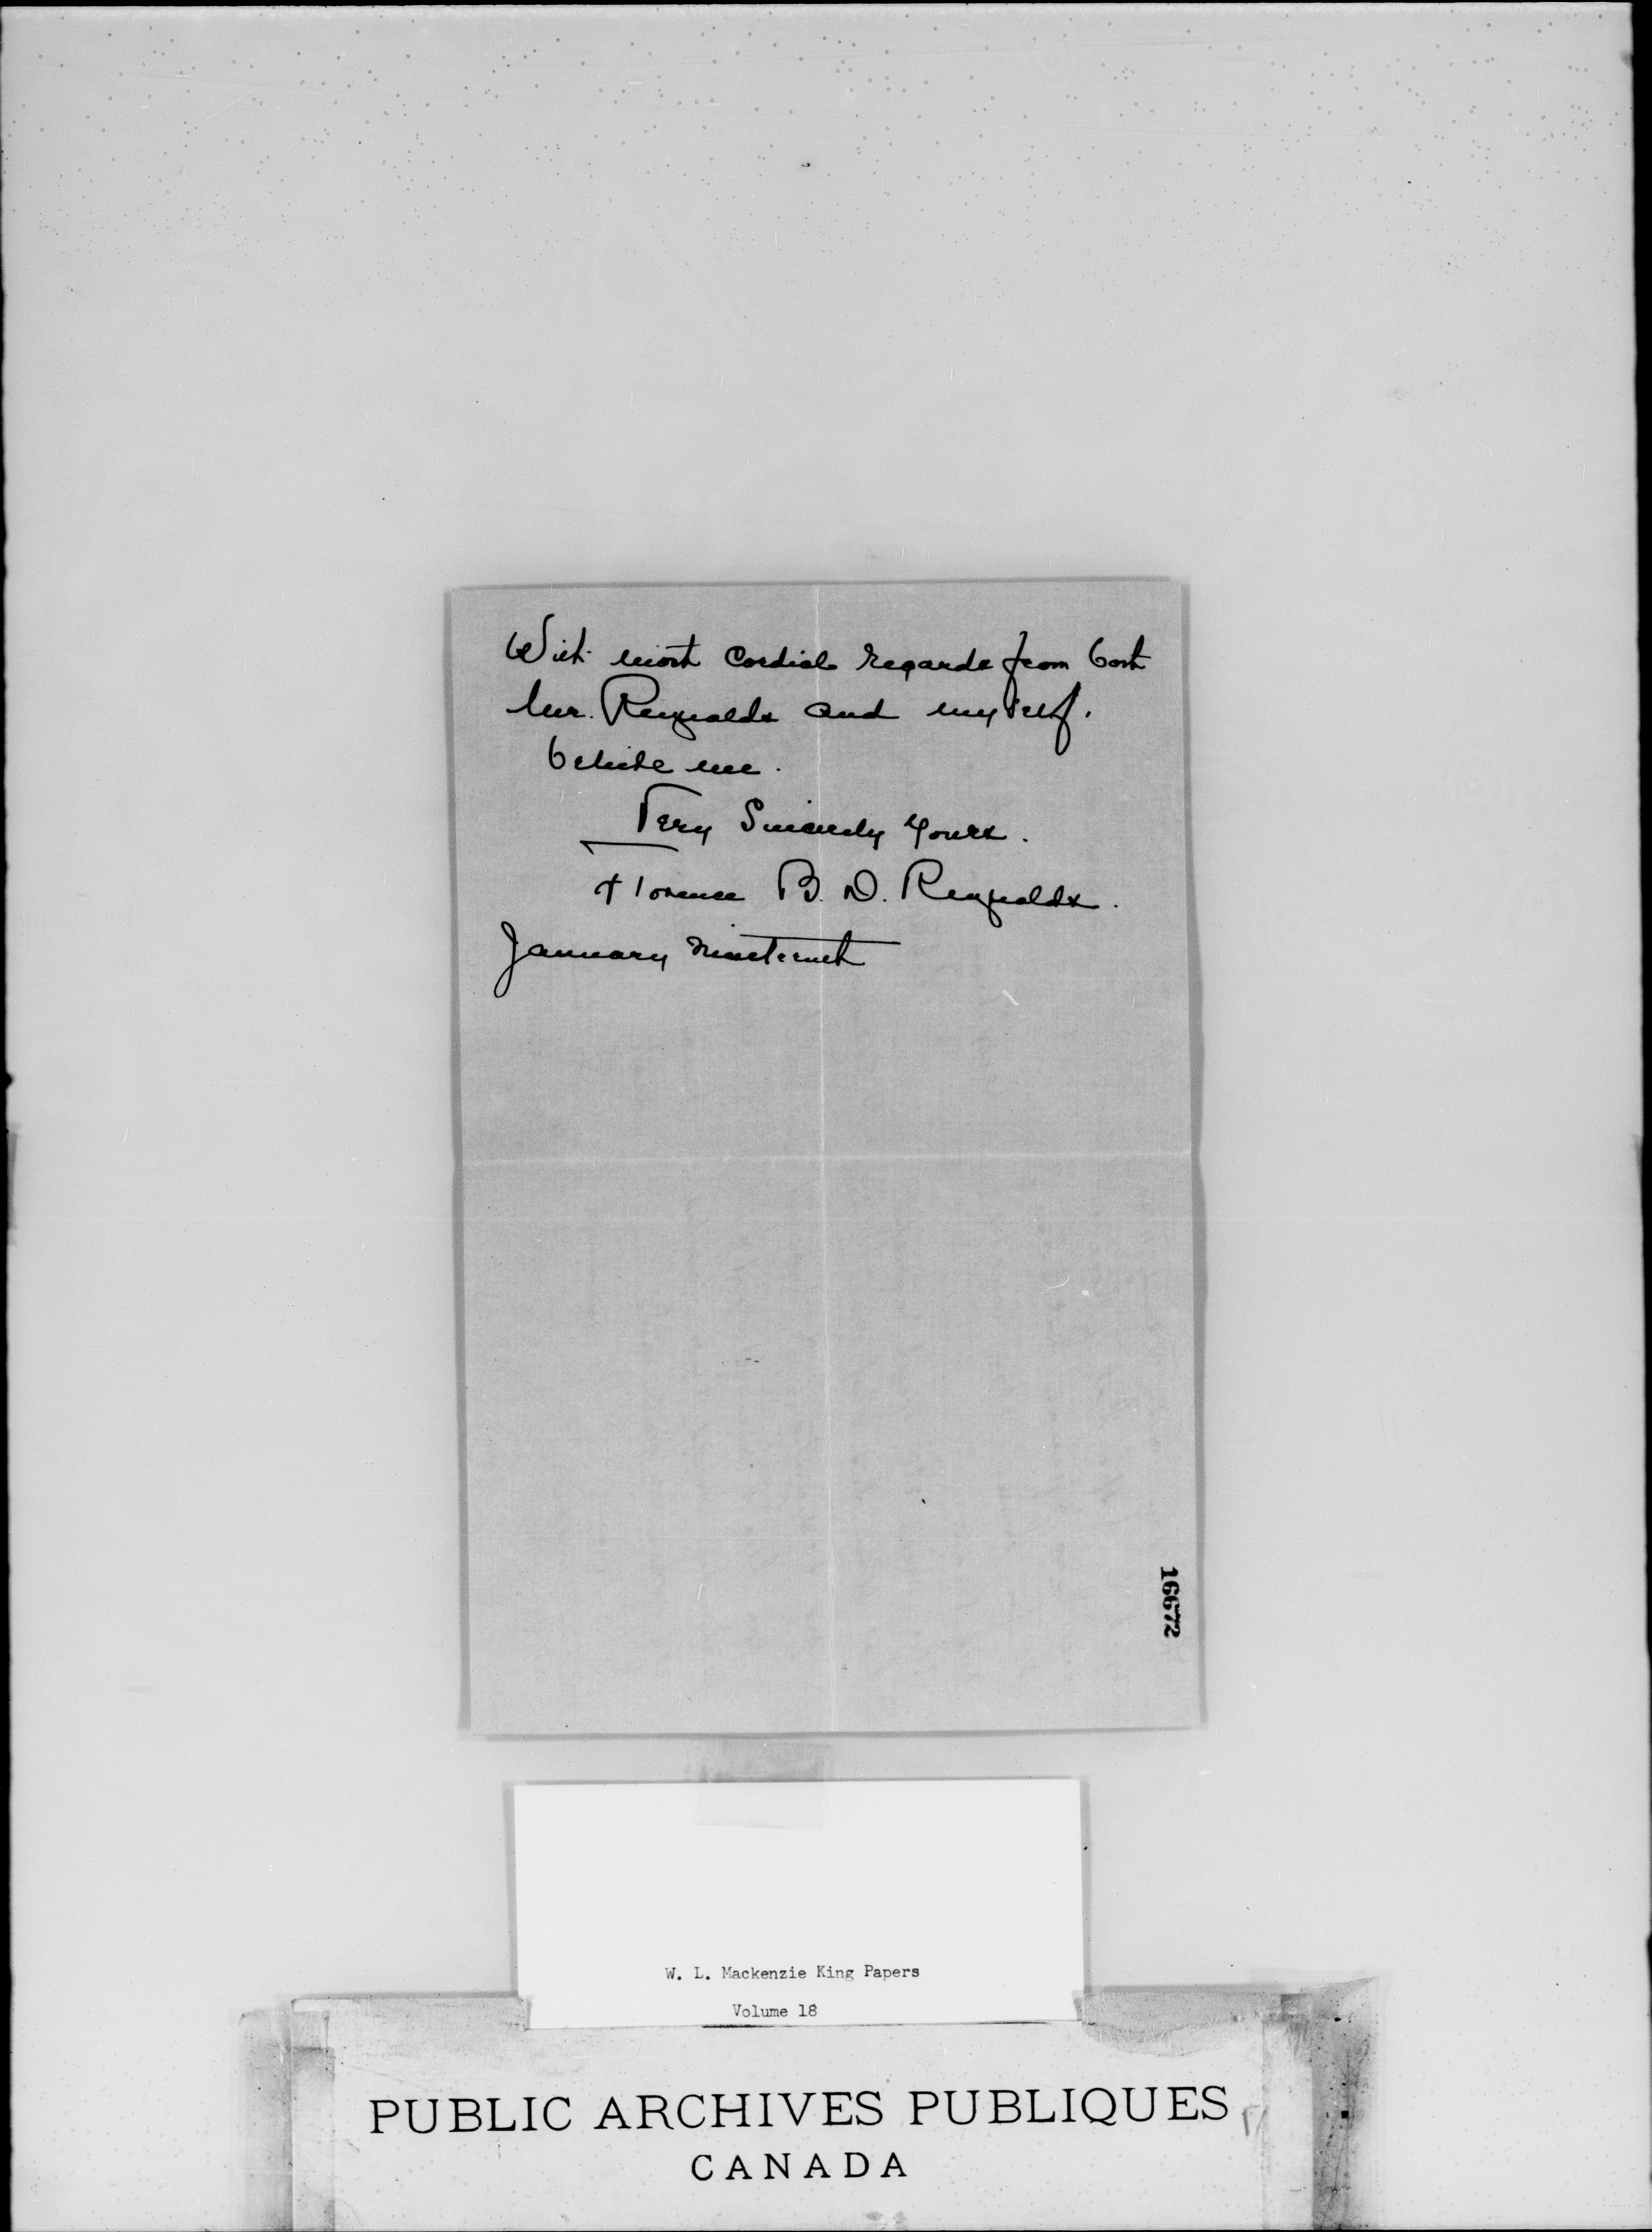 With most Cordial regards from both
Mr. Reynolds and myself.
believe me.
Very Sincerely Yours.
Florence B. D. Reynolds.
January nineteenth
16672
W. L. Mackenzie King Papers
Volume 18
PUBLIC ARCHIVES PUBLIQUES
CANADA